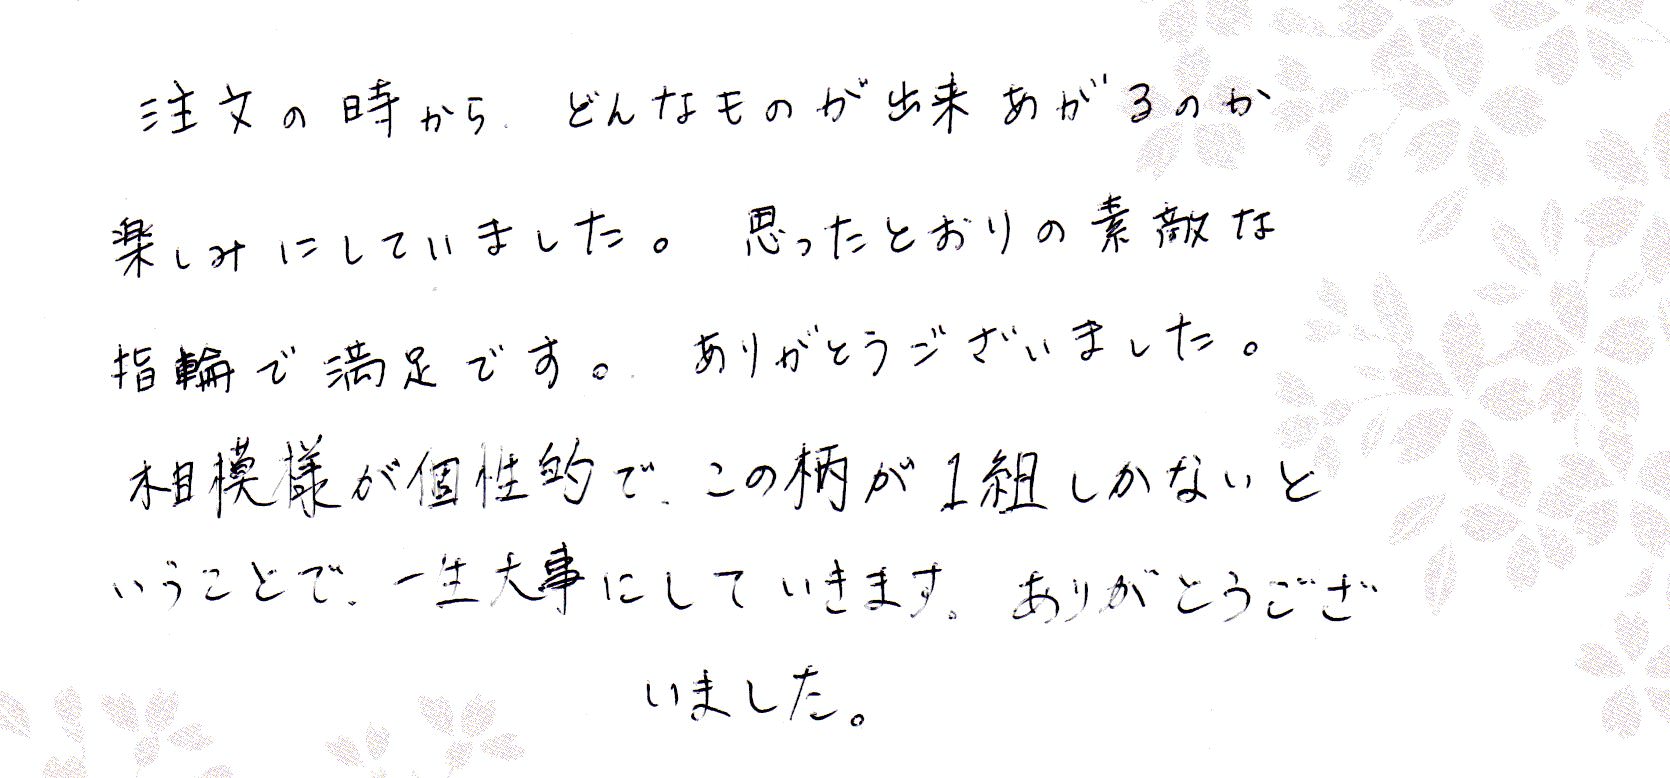 注文の時から、どんなものが出来あがるのか
楽しみにしていました。思ったとおりの素敵な
指輪で満足です。ありがとうございました。
相模様が個性的で、この柄が1組しかないと
いうことで、一生大事にしていきます。ありがとうござ
いました。